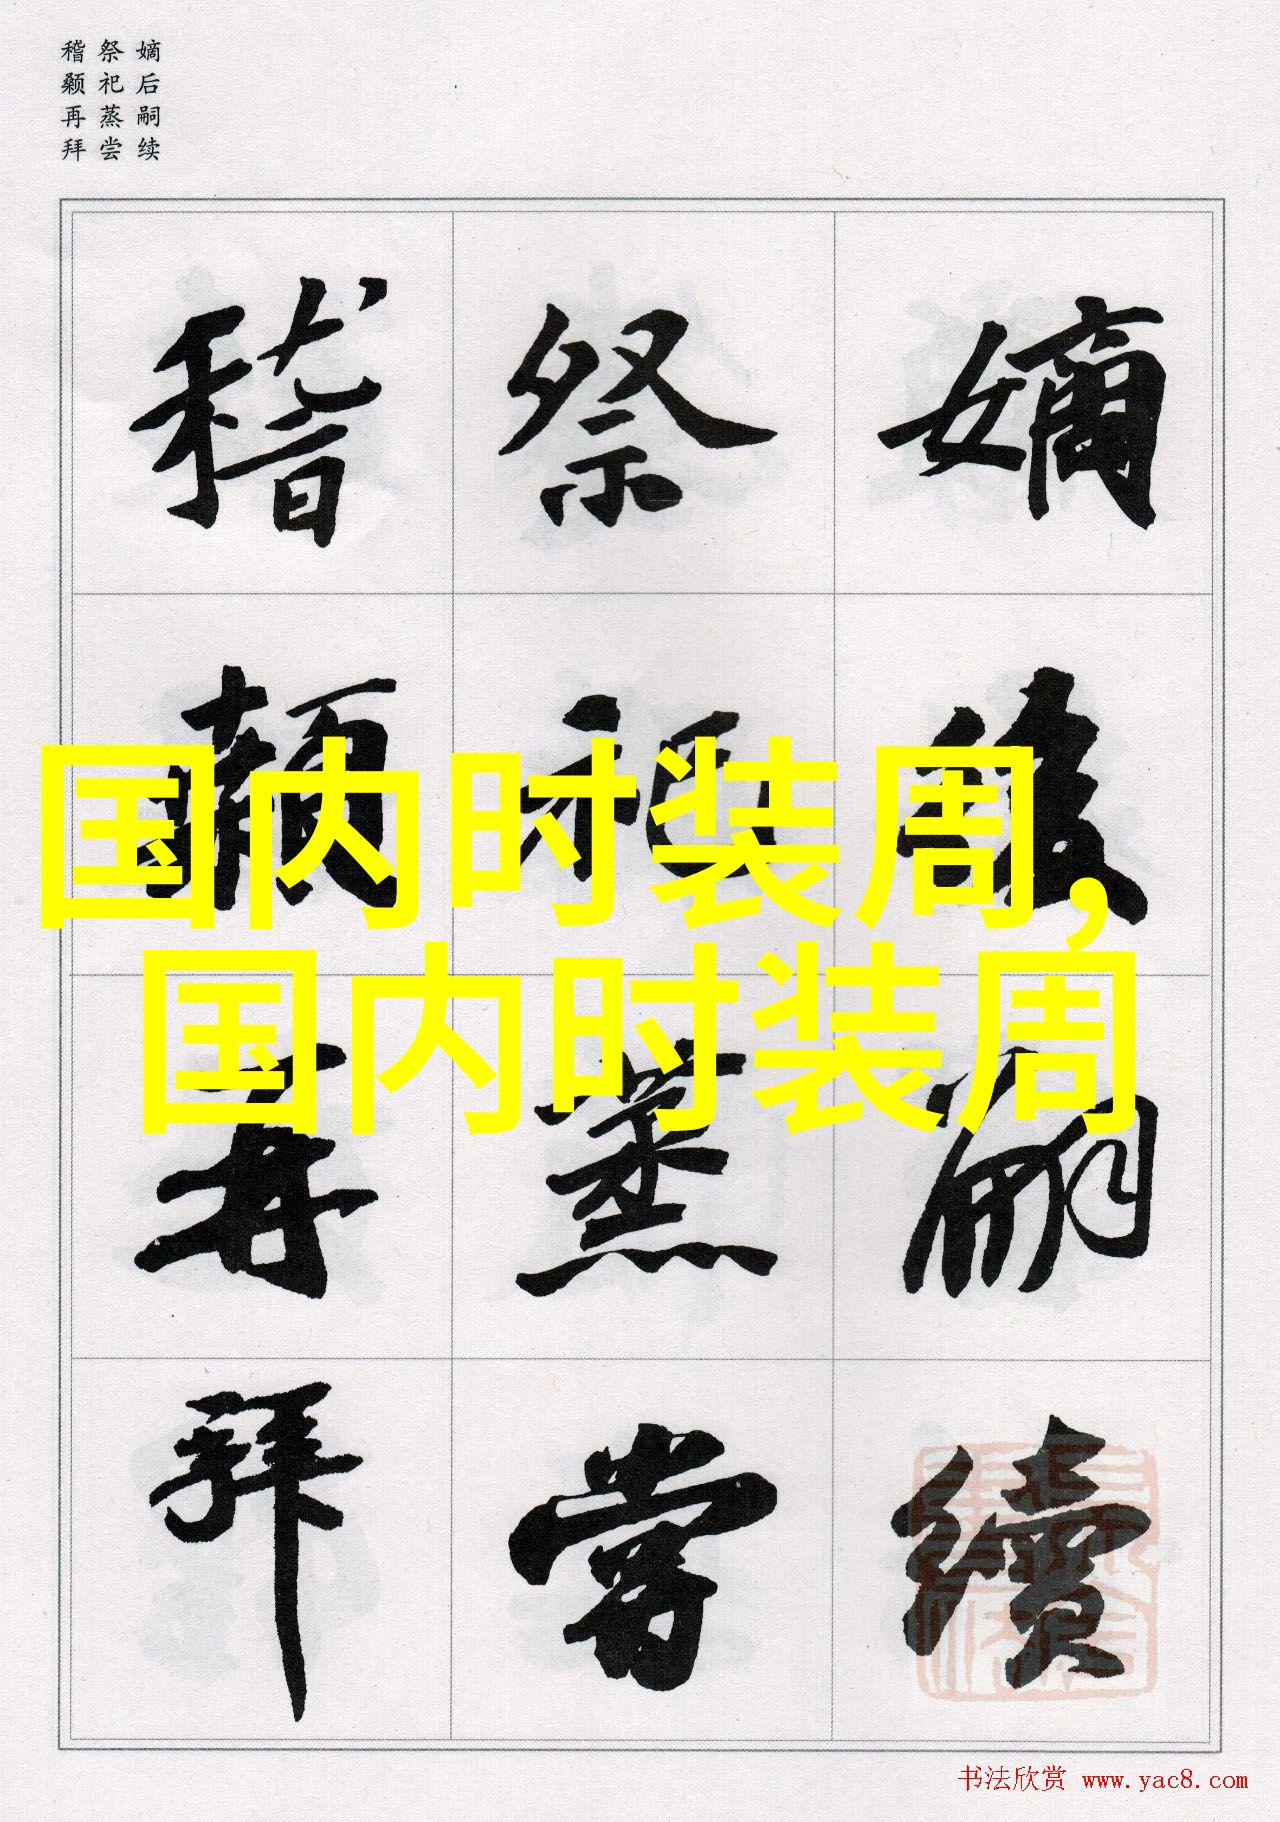 嫡后嗣续
祭祀蒸尝
稽颡再拜
嫡後嗣續
祭祀蒸嘗
稽顙再拜
国内时装周,
国内时装周
书法欣赏 www.yac8.com